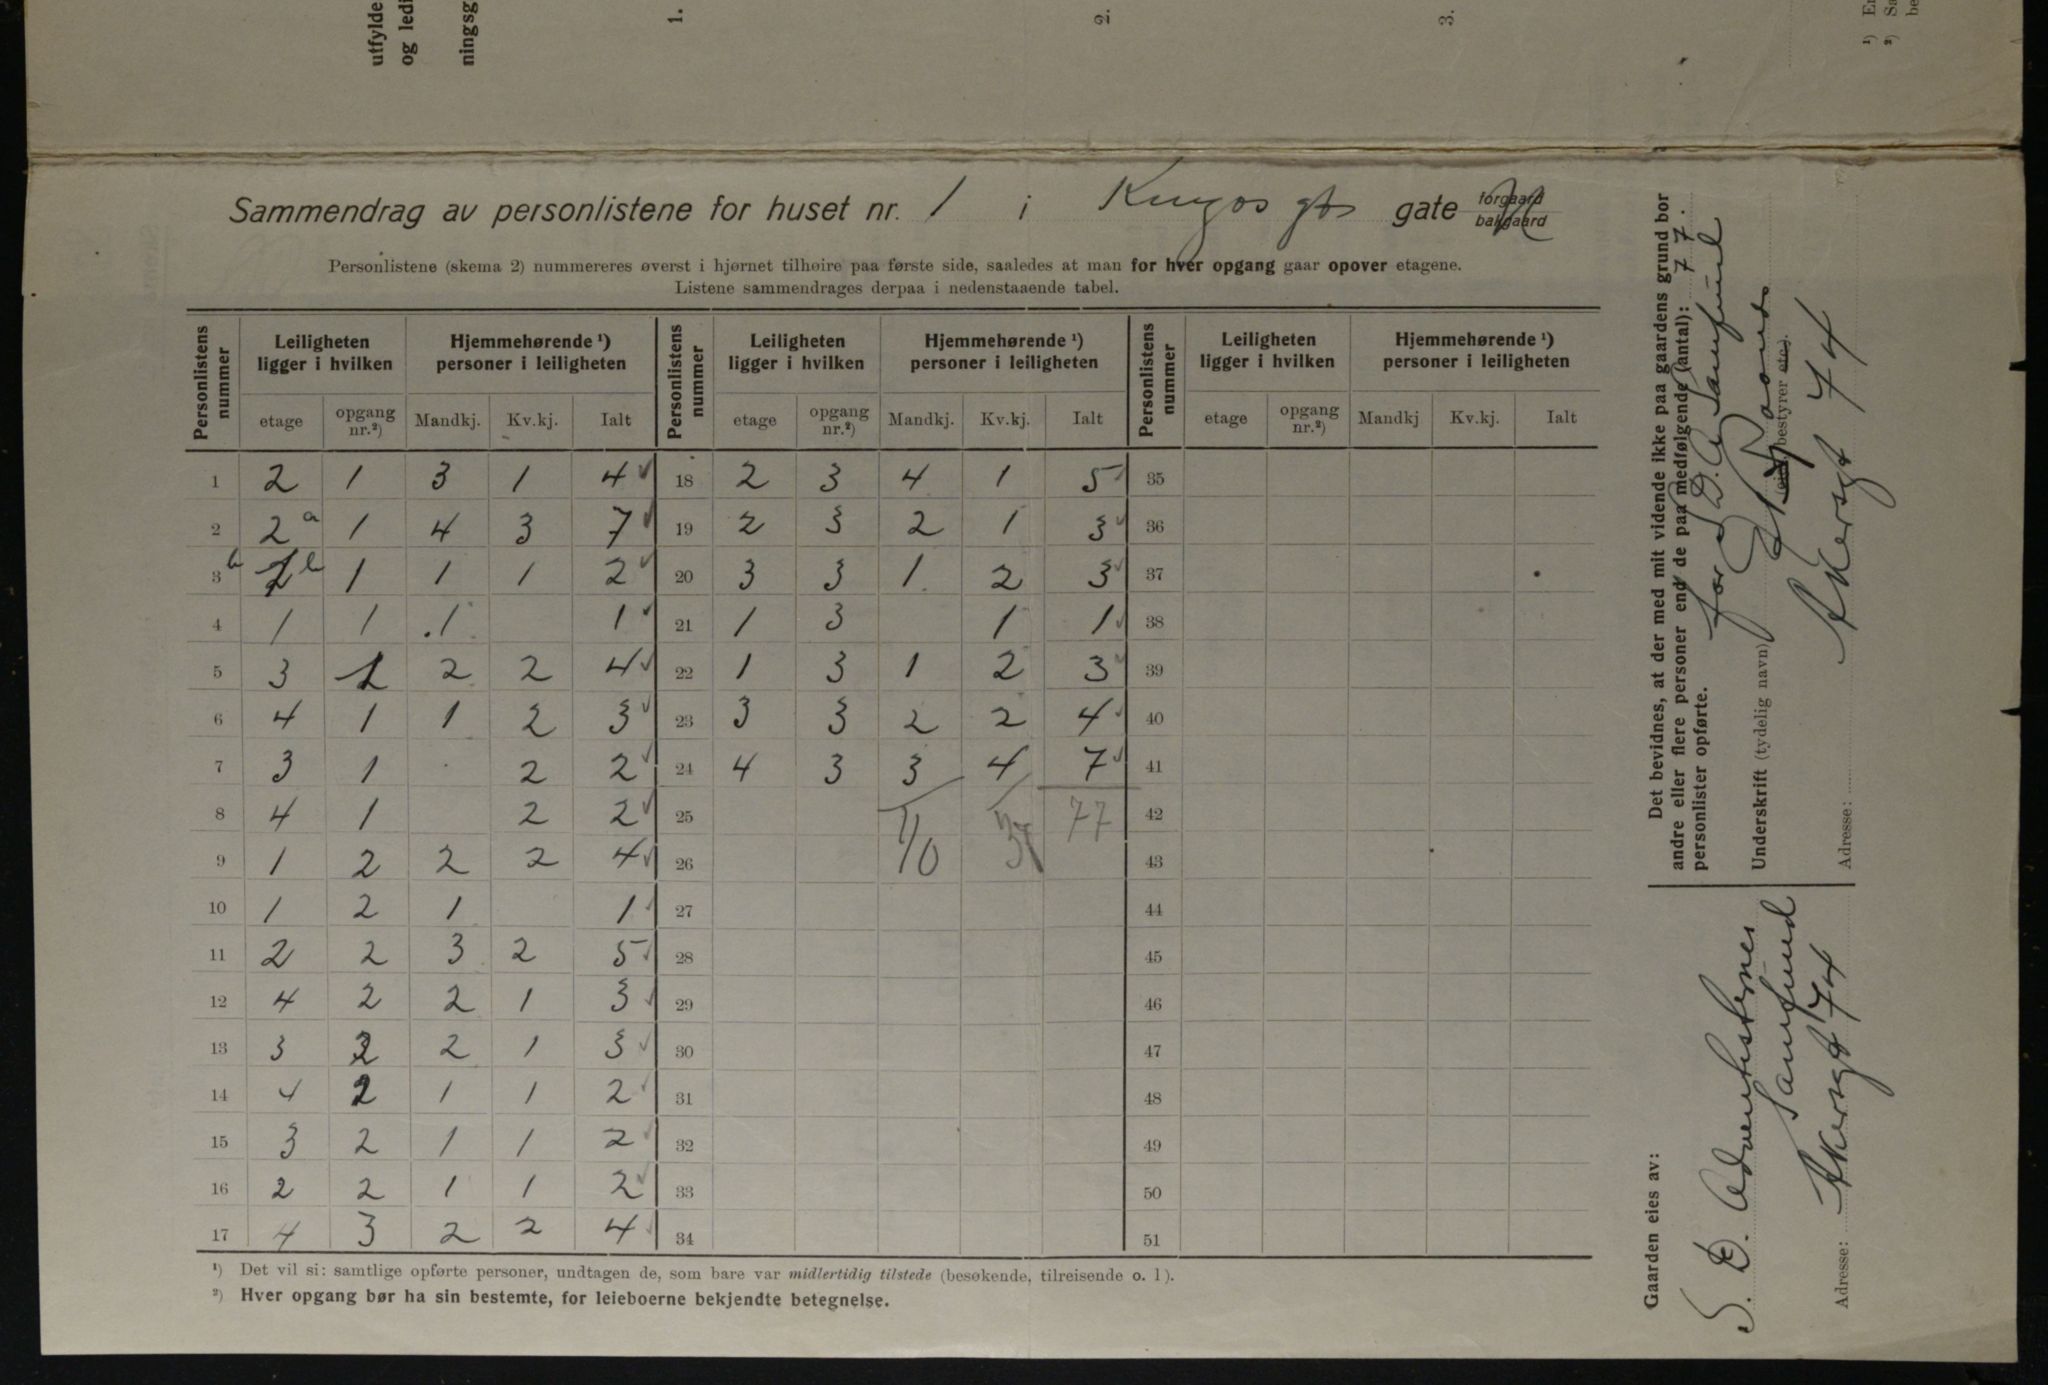 utfylde
og ledi
ningsg
1.
2.
3.
¹) En
²) Sa
be
Sammendrag av personlistene for huset nr. 1 i Kingos gt gate forgaard bakgaard
Personlistene (skema 2) nummereres øverst i hjørnet tilhøire paa første side, saaledes at man for hver opgang gaar opover etagene.
Listene sammendrages derpaa i nedenstaaende tabel.
Personlistens nummer | Leiligheten ligger i hvilken | Hjemmehørende ¹) personer i leiligheten | Personlistens nummer | Leiligheten ligger i hvilken | Hjemmehørende ¹) personer i leiligheten | Personlistens nummer | Leiligheten ligger i hvilken | Hjemmehørende ¹) personer i leiligheten
etage | opgang nr.²) | Mandkj. | Kv.kj. | Ialt | etage | opgang nr.²) | Mandkj. | Kv.kj. | Ialt | etage | opgang nr.²) | Mandkj | Kv.kj. | Ialt
1 2 1 3 1 4 18 2 3 4 1 5 35
2 2a 1 4 3 7 19 2 3 2 1 3 36
3 b 1 1 1 2 20 3 3 1 2 3 37
4 1 1 1 1 21 1 3 1 1 38
5 3 1 2 2 4 22 1 3 1 2 3 39
6 4 1 1 2 3 23 3 3 2 2 4 40
7 3 1 2 2 24 4 3 3 4 7 41
8 4 1 2 2 25 77 42
9 1 2 2 2 4 26 40 37 43
10 1 2 1 1 27 44
11 2 2 3 2 5 28 45
12 4 2 2 1 3 29 46
13 3 2 2 1 3 30 47
14 4 2 1 1 2 31 48
15 3 2 1 1 2 32 49
16 2 2 1 1 2 33 50
17 4 3 2 2 4 34 51
¹) Det vil si: samtlige opførte personer, undtagen de, som bare var midlertidig tilstede (besøkende, tilreisende o. l).
²) Hver opgang bør ha sin bestemte, for leieboerne bekjendte betegnelse.
Det bevidnes, at der med mit vidende ikke paa gaardens grund bor
andre eller flere personer end de paa medfølgende (antal): 77.
personlister opførte. for S. D. A. Samfund
Underskrift (tydelig navn)
(eier, bestyrer etc).
Adresse: Akersgt 74
Gaarden eies av:
S. D. Adventisternes
Samfund
Adresse: Akersgt 74